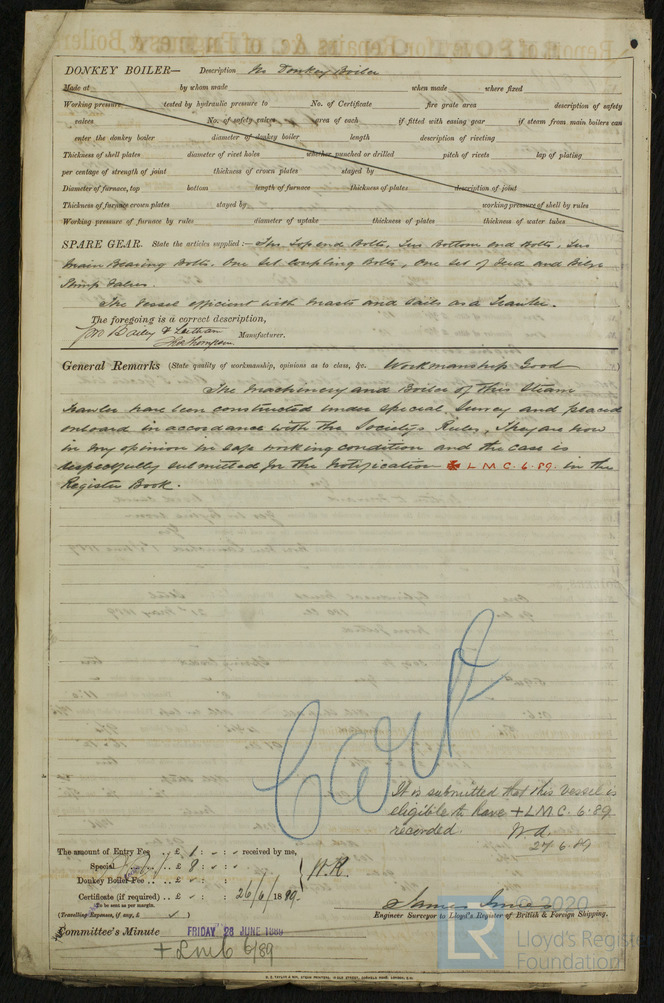 DONKEY BOILER— Description No Donkey Boiler
Made at by whom made when made where fixed
Working pressure tested by hydraulic pressure to No. of Certificate fire grate area description of safety
valves No. of safety valves area of each if fitted with easing gear if steam from main boilers can
enter the donkey boiler diameter of donkey boiler length description of riveting
Thickness of shell plates diameter of rivet holes whether punched or drilled pitch of rivets lap of plating
per centage of strength of joint thickness of crown plates stayed by
Diameter of furnace, top bottom length of furnace thickness of plates description of joint
Thickness of furnace crown plates stayed by working pressure of shell by rules
Working pressure of furnace by rules diameter of uptake thickness of plates thickness of water tubes
SPARE GEAR. State the articles supplied:— Two Top end Bolts, Two Bottom end Bolts, Two
main Bearing Bolts, One Set coupling Bolts, One Set of Feed and Bilge
Pump Valves.
The Vessel efficient with masts and Sails as a Trawler.
The foregoing is a correct description,
Bailey & Leetham Manufacturer.
Thompson
General Remarks (State quality of workmanship, opinions as to class, &c. Workmanship Good )
The Machinery and Boiler of this Steam
Trawler have been constructed under Special Survey and placed
onboard in accordance with the Society's Rules, They are now
in my opinion in safe working condition and the case is
respectfully submitted for the Notification ✠ L M C. 6·89. in the
Register Book.
It is submitted that this vessel is
eligible to have + L.M.C. 6·89
recorded.
27·6·89
The amount of Entry Fee .. £ 1 : - : - received by me,
Special .. £ 8 : - : -
Donkey Boiler Fee .. .. £ - : - : -
Certificate (if required) .. £ - : - : - 26/6/1889.
(To be sent as per margin.)
(Travelling Expenses, if any, £ )
James Innes
Engineer Surveyor to Lloyd's Register of British & Foreign Shipping.
Committee's Minute FRIDAY 28 JUNE 1889
+ LMC 6/89
© 2020
LR
Lloyd's Register
Foundation